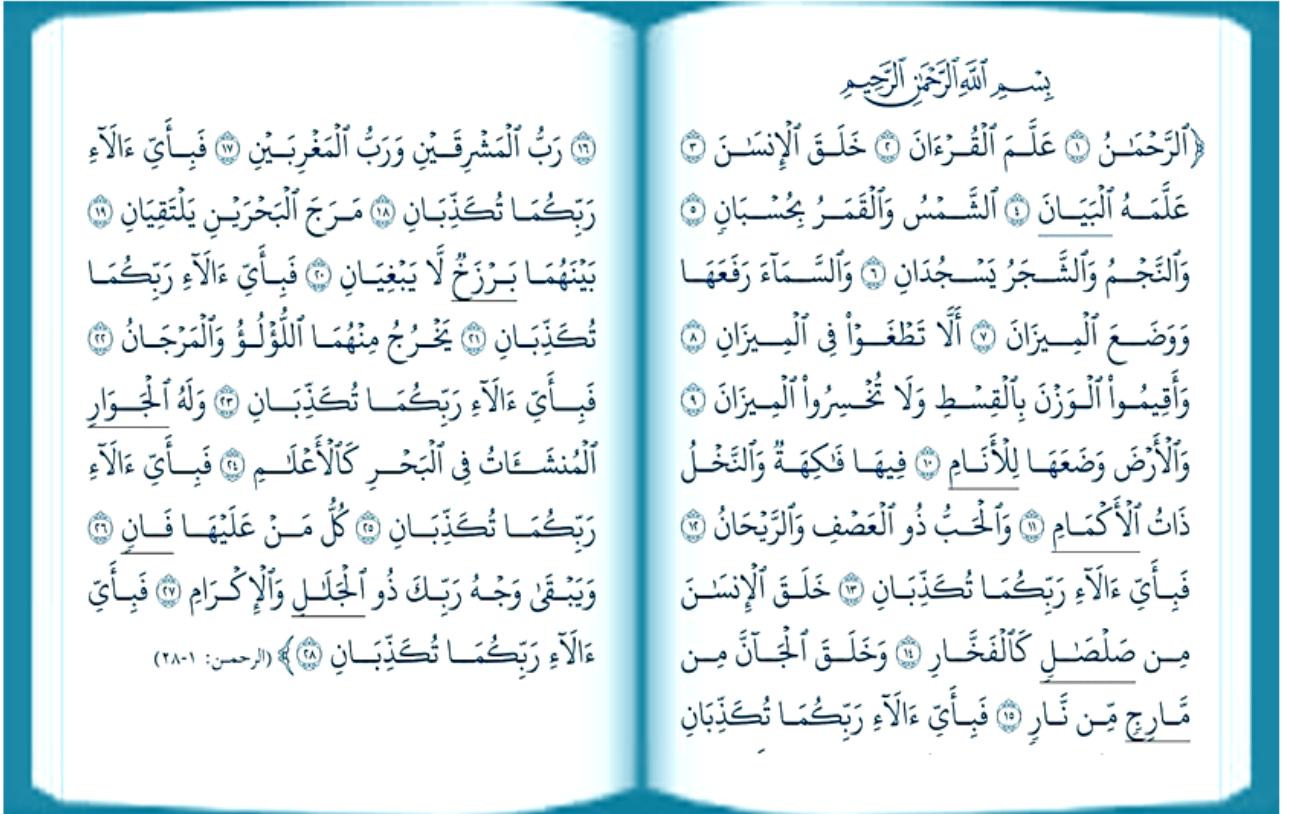 بِسْمِ ٱللَّهِ ٱلرَّحْمَٰنِ ٱلرَّحِيمِ
﴿ٱلرَّحْمَـٰنُ ١ عَلَّمَ ٱلْقُرْءَانَ ٢ خَلَقَ ٱلْإِنسَـٰنَ ٣
عَلَّمَهُ ٱلْبَيَانَ ٤ ٱلشَّمْسُ وَٱلْقَمَرُ بِحُسْبَانٍ ٥
وَٱلنَّجْمُ وَٱلشَّجَرُ يَسْجُدَانِ ٦ وَٱلسَّمَآءَ رَفَعَهَا
وَوَضَعَ ٱلْمِيزَانَ ٧ أَلَّا تَطْغَوْا۟ فِى ٱلْمِيزَانِ ٨
وَأَقِيمُوا۟ ٱلْوَزْنَ بِٱلْقِسْطِ وَلَا تُخْسِرُوا۟ ٱلْمِيزَانَ ٩
وَٱلْأَرْضَ وَضَعَهَا لِلْأَنَامِ ١٠ فِيهَا فَـٰكِهَةٌ وَٱلنَّخْلُ
ذَاتُ ٱلْأَكْمَامِ ١١ وَٱلْحَبُّ ذُو ٱلْعَصْفِ وَٱلرَّيْحَانُ ١٢
فَبِأَىِّ ءَالَآءِ رَبِّكُمَا تُكَذِّبَانِ ١٣ خَلَقَ ٱلْإِنسَـٰنَ
مِن صَلْصَـٰلٍ كَٱلْفَخَّارِ ١٤ وَخَلَقَ ٱلْجَآنَّ مِن
مَّارِجٍ مِّن نَّارٍ ١٥ فَبِأَىِّ ءَالَآءِ رَبِّكُمَا تُكَذِّبَانِ
١٦ رَبُّ ٱلْمَشْرِقَيْنِ وَرَبُّ ٱلْمَغْرِبَيْنِ ١٧ فَبِأَىِّ ءَالَآءِ
رَبِّكُمَا تُكَذِّبَانِ ١٨ مَرَجَ ٱلْبَحْرَيْنِ يَلْتَقِيَانِ ١٩
بَيْنَهُمَا بَرْزَخٌ لَّا يَبْغِيَانِ ٢٠ فَبِأَىِّ ءَالَآءِ رَبِّكُمَا
تُكَذِّبَانِ ٢١ يَخْرُجُ مِنْهُمَا ٱللُّؤْلُؤُ وَٱلْمَرْجَانُ ٢٢
فَبِأَىِّ ءَالَآءِ رَبِّكُمَا تُكَذِّبَانِ ٢٣ وَلَهُ ٱلْجَوَارِ
ٱلْمُنشَـَٔاتُ فِى ٱلْبَحْرِ كَٱلْأَعْلَـٰمِ ٢٤ فَبِأَىِّ ءَالَآءِ
رَبِّكُمَا تُكَذِّبَانِ ٢٥ كُلُّ مَنْ عَلَيْهَا فَانٍ ٢٦
وَيَبْقَىٰ وَجْهُ رَبِّكَ ذُو ٱلْجَلَـٰلِ وَٱلْإِكْرَامِ ٢٧ فَبِأَىِّ
ءَالَآءِ رَبِّكُمَا تُكَذِّبَانِ ٢٨﴾ (الرحمن: ١-٢٨)